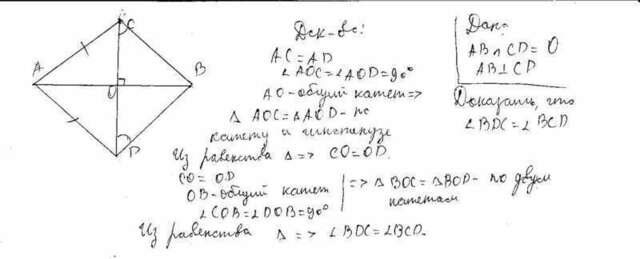 C
A
O
B
D
Док-во:
AC=AD
∠AOC=∠AOD=90°
AO-общий катет=>
△ AOC=△AOD- по
катету и гипотенузе
Из равенства △=> CO=OD.
CO=OD
OB-общий катет
∠COB=∠DOB=90°
=> △ BOC=△BOD- по двум
катетам
Из равенства △ => ∠BDC=∠BCD.
Дано:
AB∩CD=O
AB⊥CD
Доказать, что
∠BDC=∠BCD